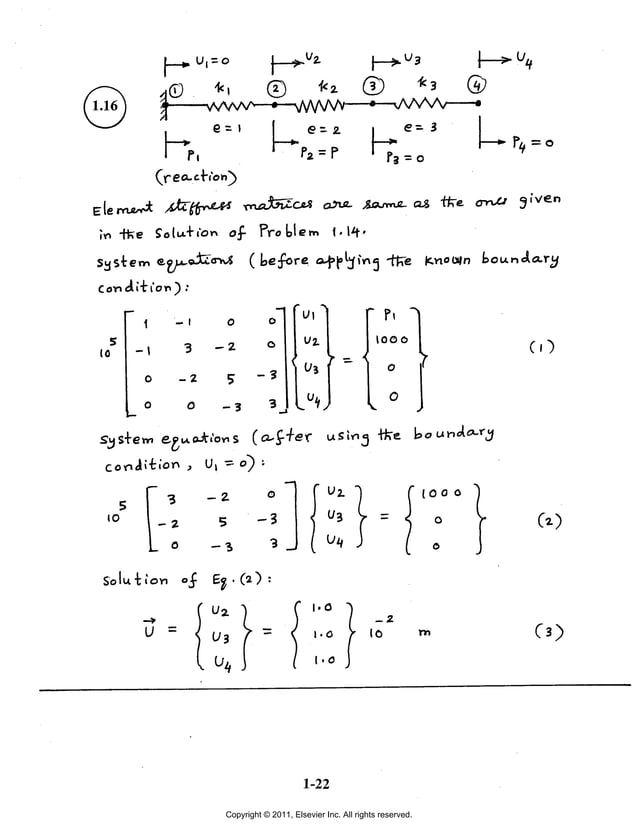 U1 = 0 U2 U3 U4
1.16 1 k1 2 k2 3 k3 4
e = 1 e = 2 e = 3
P1 P2 = P P3 = 0 P4 = 0
(reaction)
Element stiffness matrices are same as the ones given
in the solution of Problem 1.14.
System equations (before applying the known boundary
condition):
10^5 [ 1 -1 0 0 ] { U1 } = { P1 }
[ -1 3 -2 0 ] { U2 } { 1000 } (1)
[ 0 -2 5 -3 ] { U3 } { 0 }
[ 0 0 -3 3 ] { U4 } { 0 }
System equations (after using the boundary
condition, U1 = 0):
10^5 [ 3 -2 0 ] { U2 } { 1000 }
[ -2 5 -3 ] { U3 } = { 0 } (2)
[ 0 -3 3 ] { U4 } { 0 }
Solution of Eq. (2):
{ U2 } { 1.0 }
U⃗ = { U3 } = { 1.0 } 10^-2 m (3)
{ U4 } { 1.0 }
1-22
Copyright © 2011, Elsevier Inc. All rights reserved.